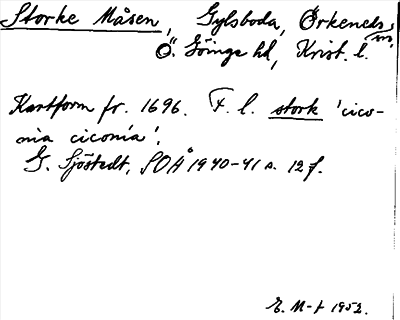 Storke Måsen, Gylsboda, Örkeneds sn,
Ö. Göinge hd, Krist. l.
Kartform fr. 1696. F. l. stork 'cico-
nia ciconia'.
G. Sjöstedt, SOÅ 1940-41 s. 12 f.
E. M-t 1952.